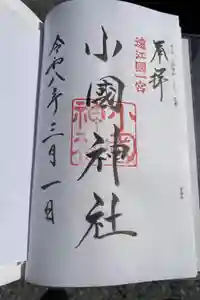 奉拝
遠江國一宮
小國神社
令和八年三月一日